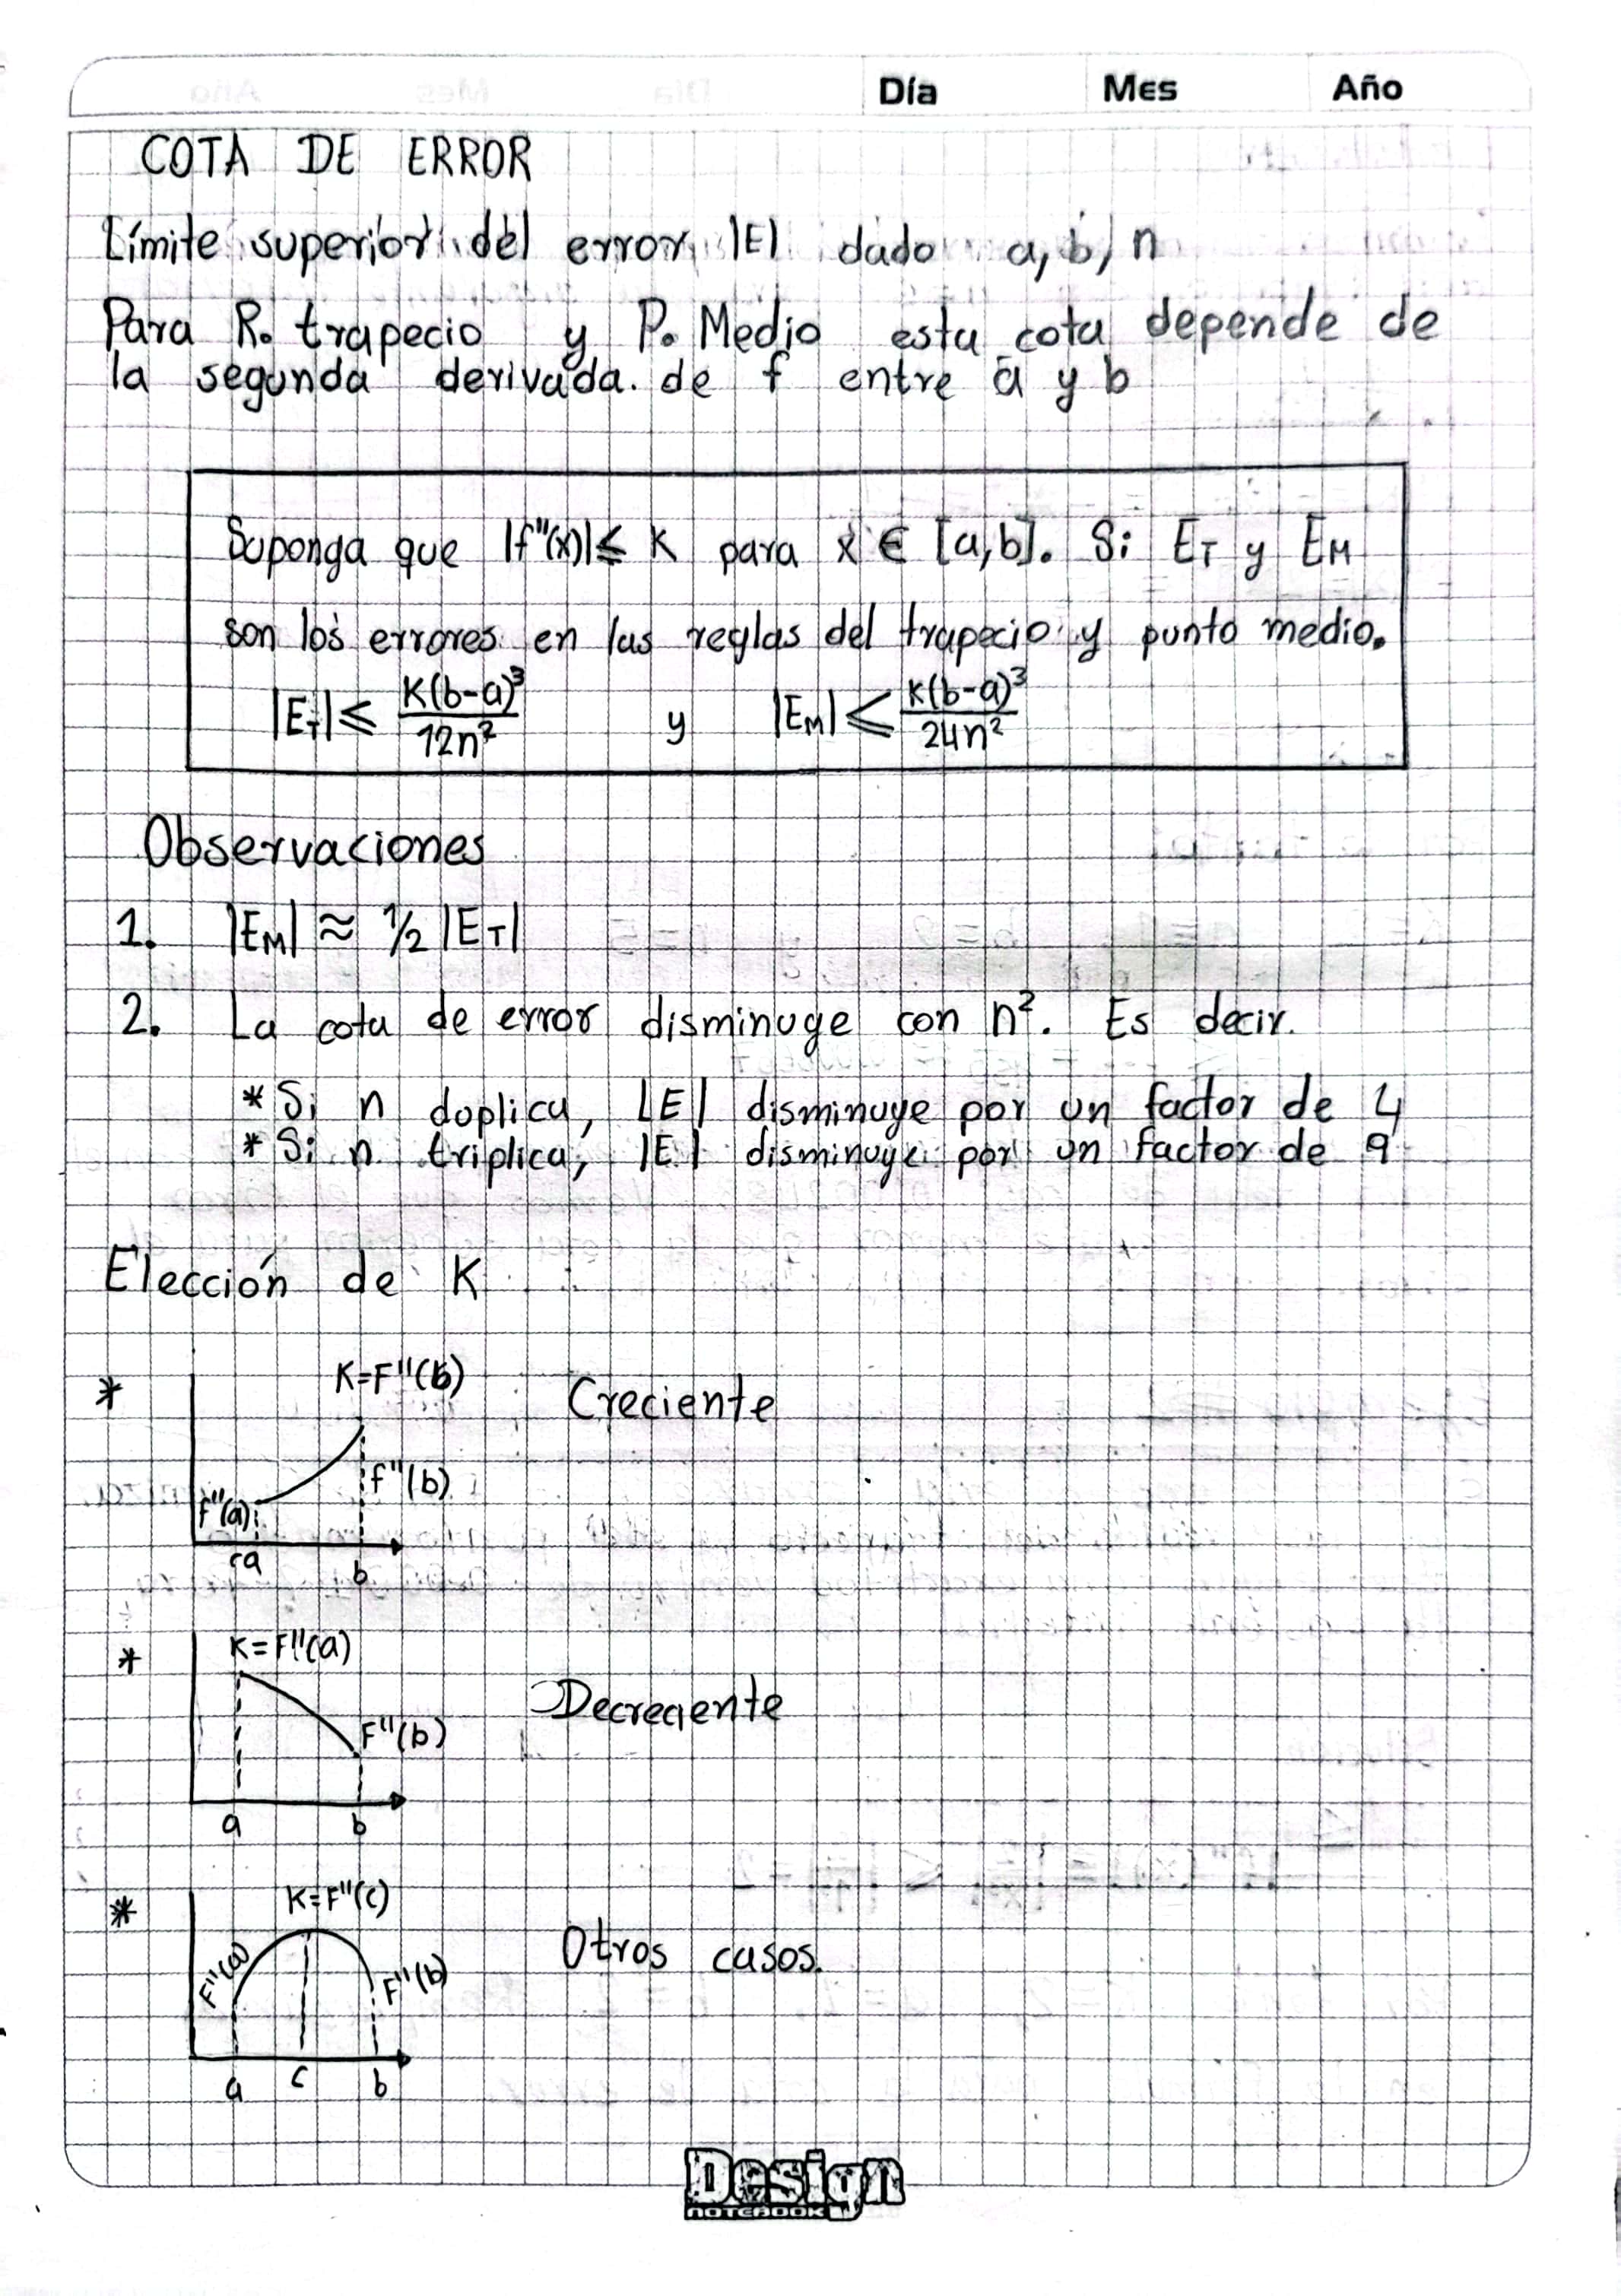 Día Mes Año
COTA DE ERROR
Límite superior del error |E| dado a, b, n
Para R. trapecio y P. Medio esta cota depende de
la segunda derivada. de f entre a y b
Suponga que |f''(x)| ≤ K para x ∈ [a,b]. Si E_T y E_M
son los errores en las reglas del trapecio y punto medio.
|E_T| ≤ K(b-a)³/12n² y |E_M| ≤ K(b-a)³/24n²
Observaciones
1. |E_M| ≈ 1/2 |E_T|
2. La cota de error disminuye con n². Es decir.
* Si n doplica, |E| disminuye por un factor de 4
* Si n triplica, |E| disminuye por un factor de 9
Elección de K
* K=F''(b) Creciente
f''(b)
F''(a)
a b
* K=F''(a)
F''(b) Decreciente
a b
* K=F''(c)
F''(a) F''(b) Otros casos.
a c b
Design
NOTEBOOK